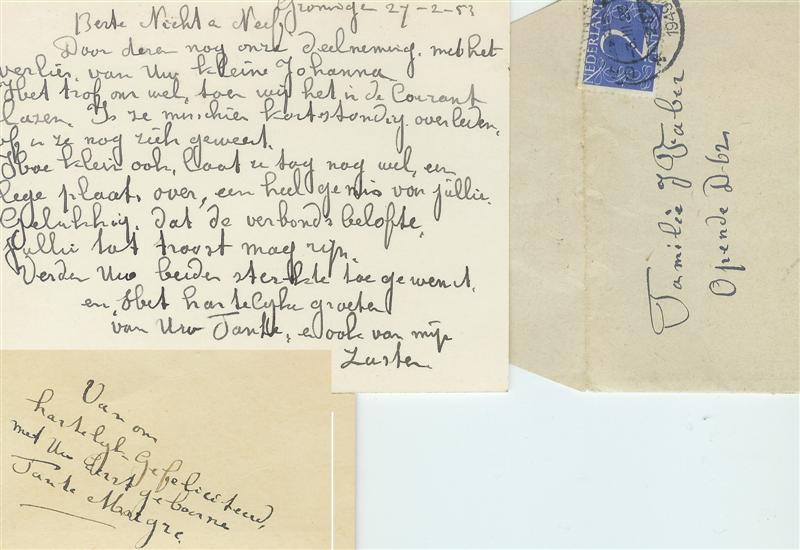 Groningen 27-2-53
Beste Nicht & Neef,
Door deren nog onze deelneming, met het
verlies, van Uw kleine Johanna
Het trof ons wel, toen wij het in de Courant
lazen. Is ze misschien kortstondig overleden,
of is ze nog ziek geweest.
Hoe klein ook, laat u tog nog wel, een
lege plaats over, een heel gemis voor jullie.
Gelukkig, dat de verbonds belofte,
jullie tot troost mag zijn.
Verder Uw beiden sterkte toe gewenst,
en Het hartelijke groeten
van Uw Tante, en ook van mijn
Zuster.
Van ons
hartelijk Gefeliciteerd,
met Uw eerst geboorne
Tante Margre.
NEDERLAND
2
1949
Familie J Faber
Opende D 62